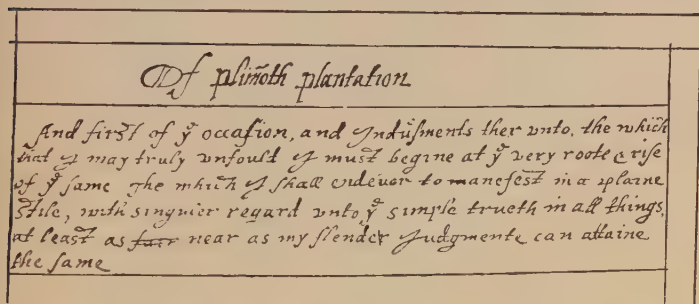 Of plim̃oth plantation
And first of yᵉ occasion, and Jndüsments ther vnto, the which
that J may truly vnfould J must begine at yᵉ very roote & rise
of yᵉ same The which J shall endevor to manefest in a plaine
stile, with singuler regard vnto yᵉ simple trueth in all things,
at least as fair near as my slender Judgmente can attaine
the same